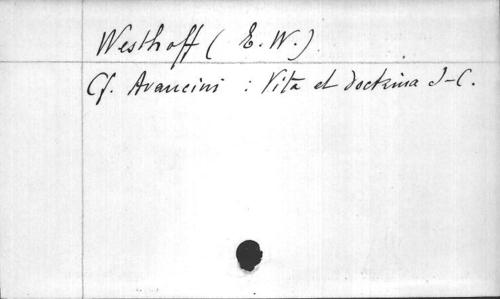 Westhoff ( E. W.)
Cf. Avancini : Vita et doctrina J-C.